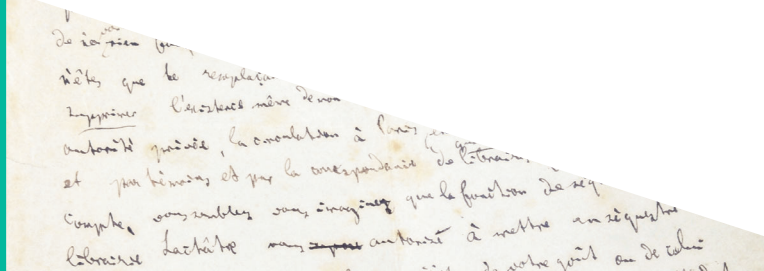 n'êtes que le remplaça
supprimer l'existence même de mon
autorité privée, la circulation à Paris
et par témoins et par la correspondance de libraires,
compte, vous semblez vous imaginez que la fonction de séq
librairie Lachâtre vous autorise à mettre en séquestre
votre goût ou de celui